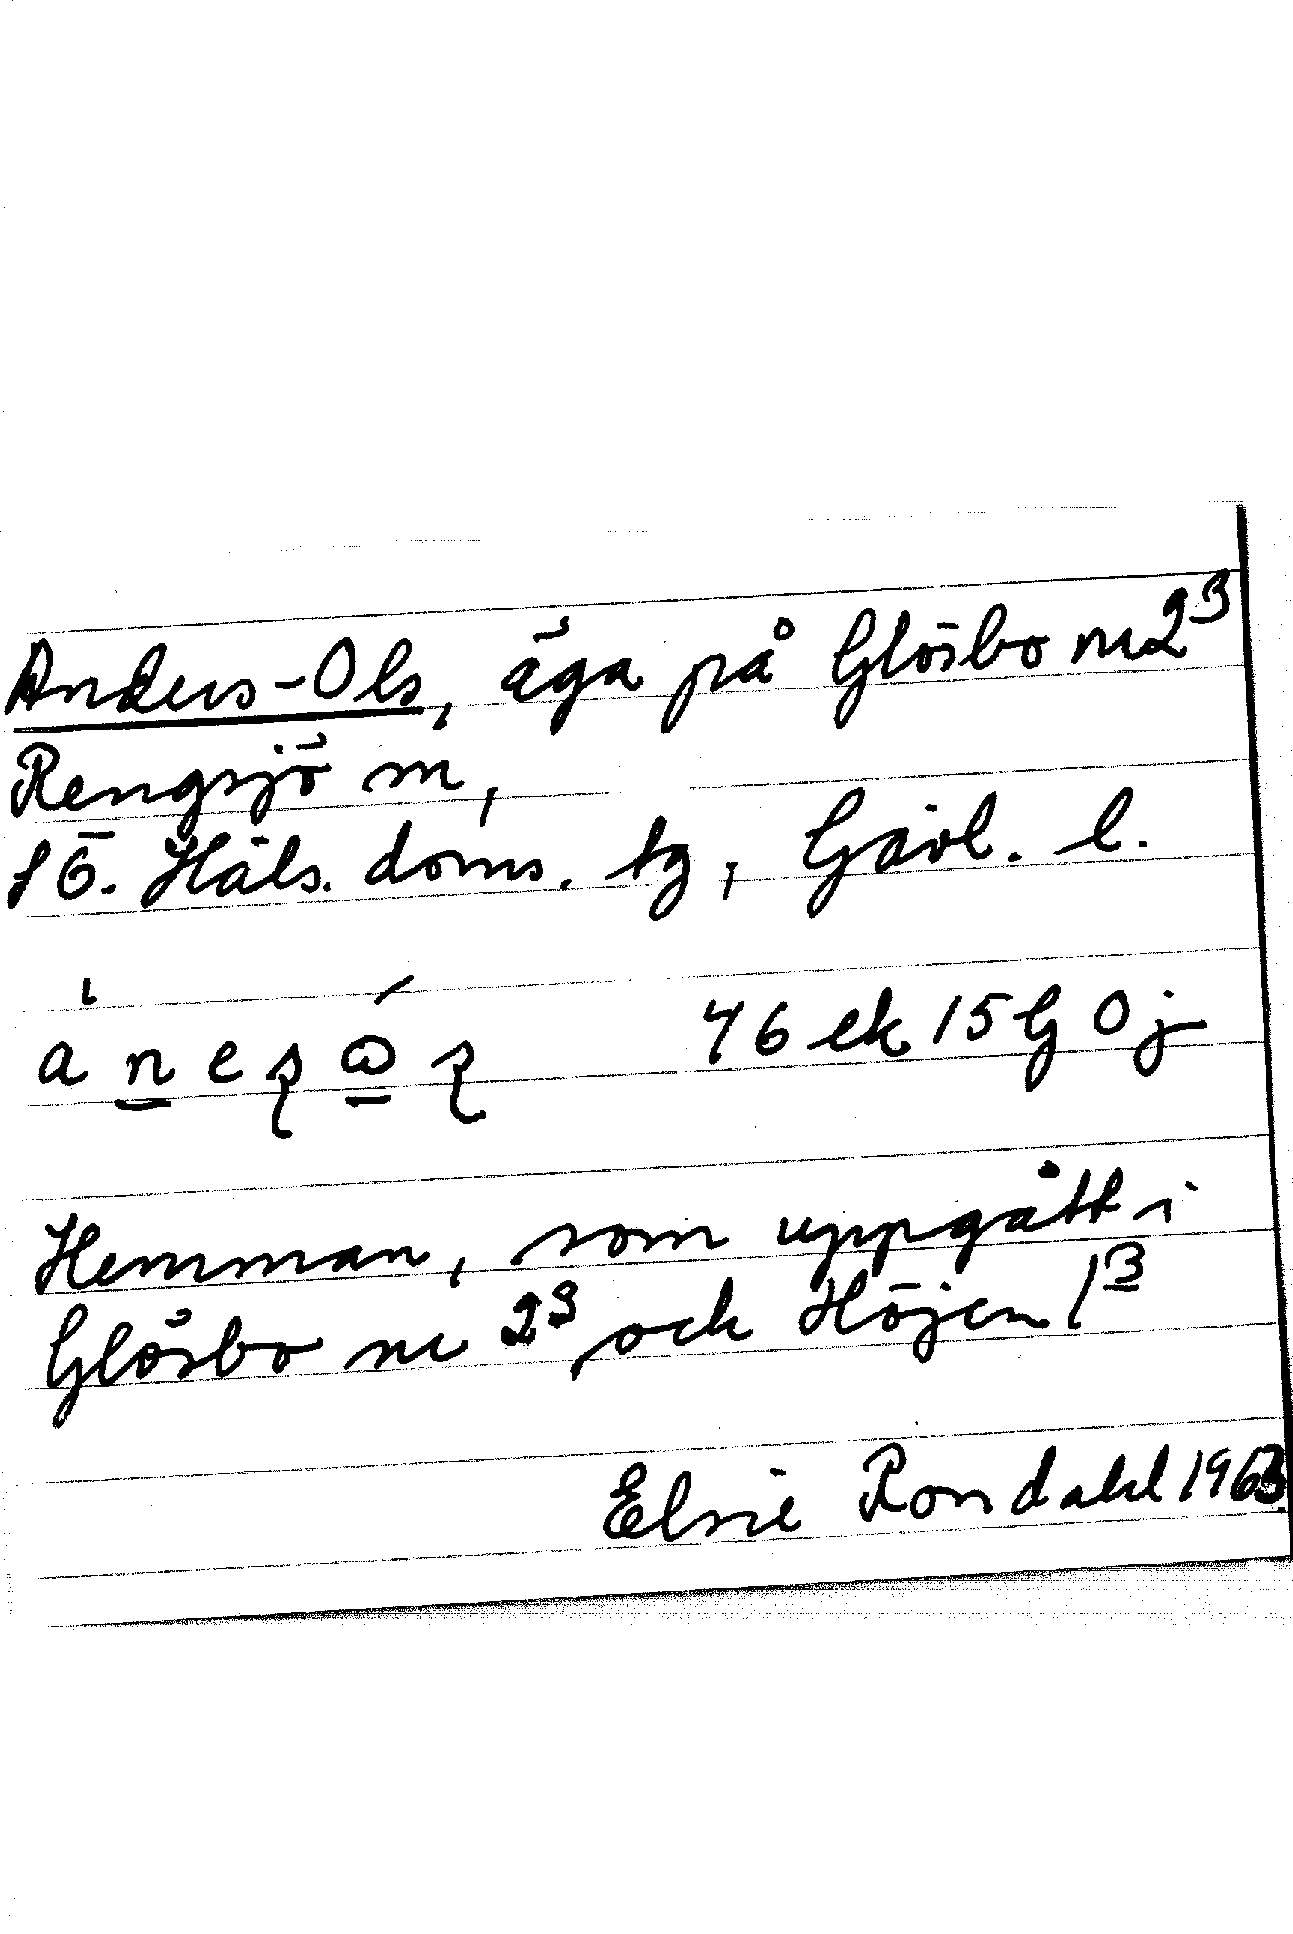 Anders-Ols, äga på Glösbo nr 2³
Rengsjö sn,
S Ö. Häls. doms. tg, Gävl. l.
76 ek 15 G 0 j
Hemman, som uppgått i
Glösbo nr 2³, och Höjen 1³
Elsie Rondahl 1963